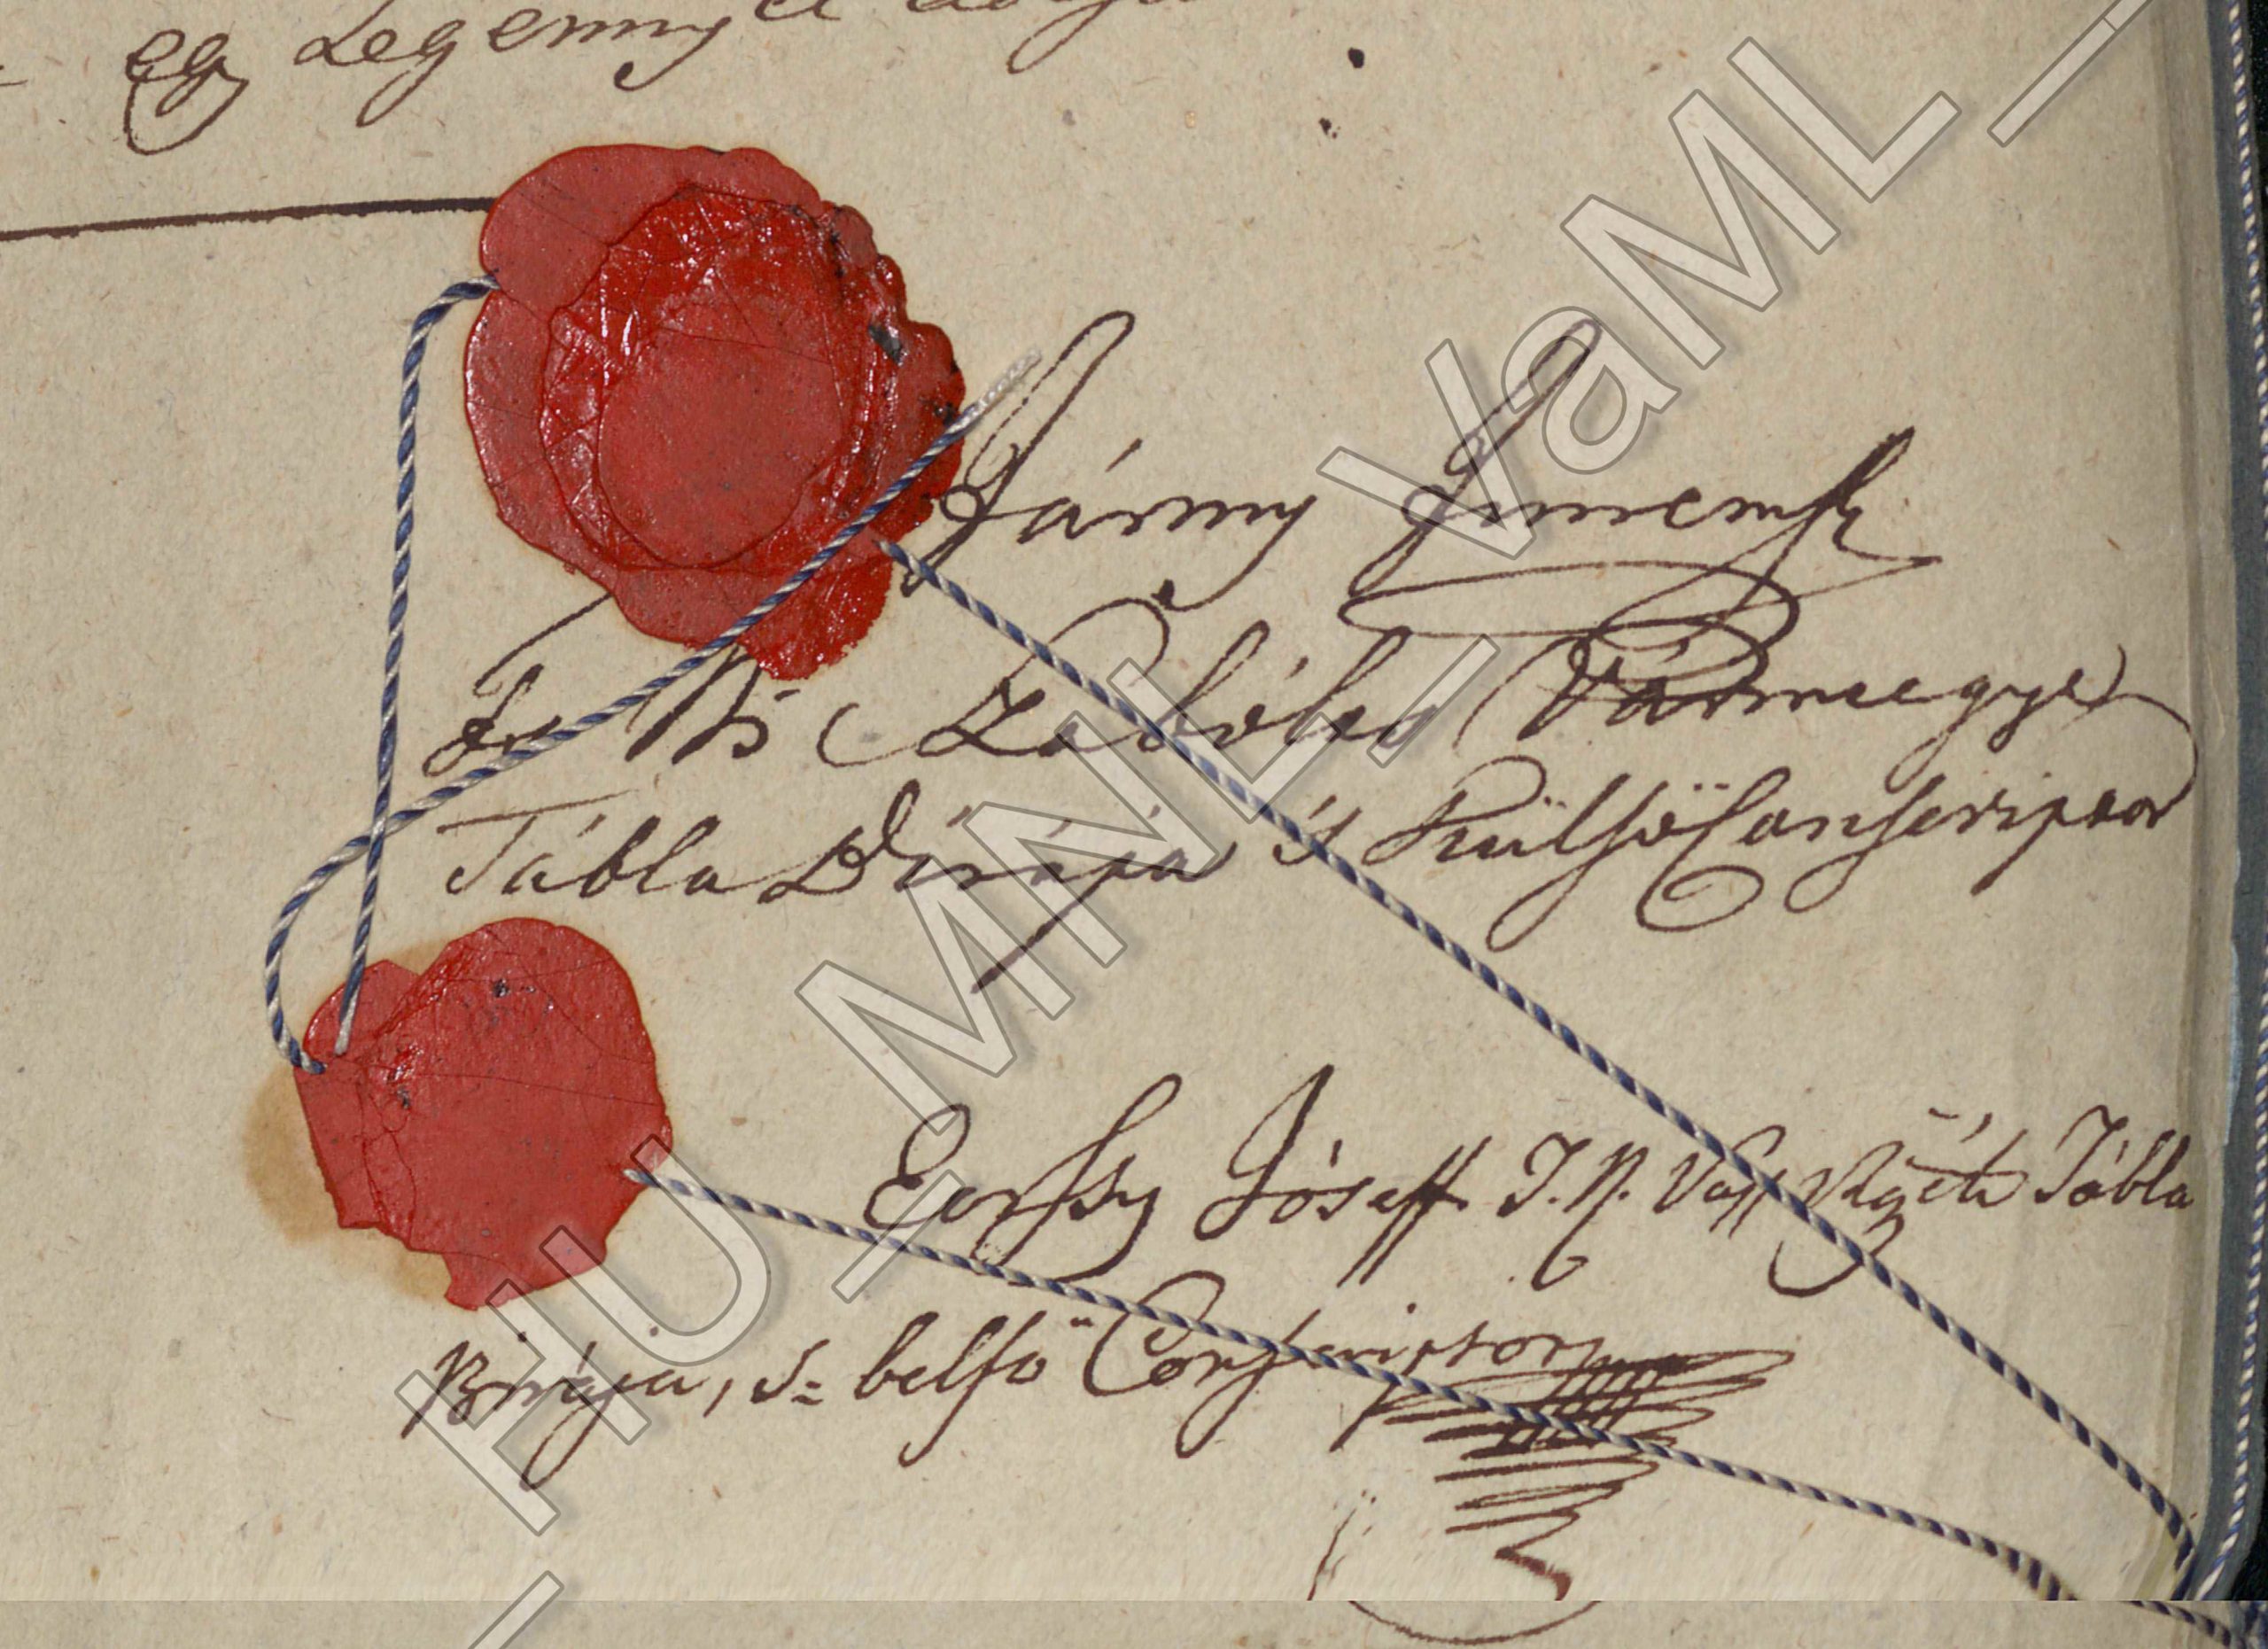 egy Legennyel
Jármy Imremk
T. Ns Szabólcs Vármegye
Tábla Birája 's Külső Conscriptor
Eörsy Jóseff T. N. Vass Vgyének Tábla
Birája, s= belső Conscriptor
_HU_MNL_VaML_